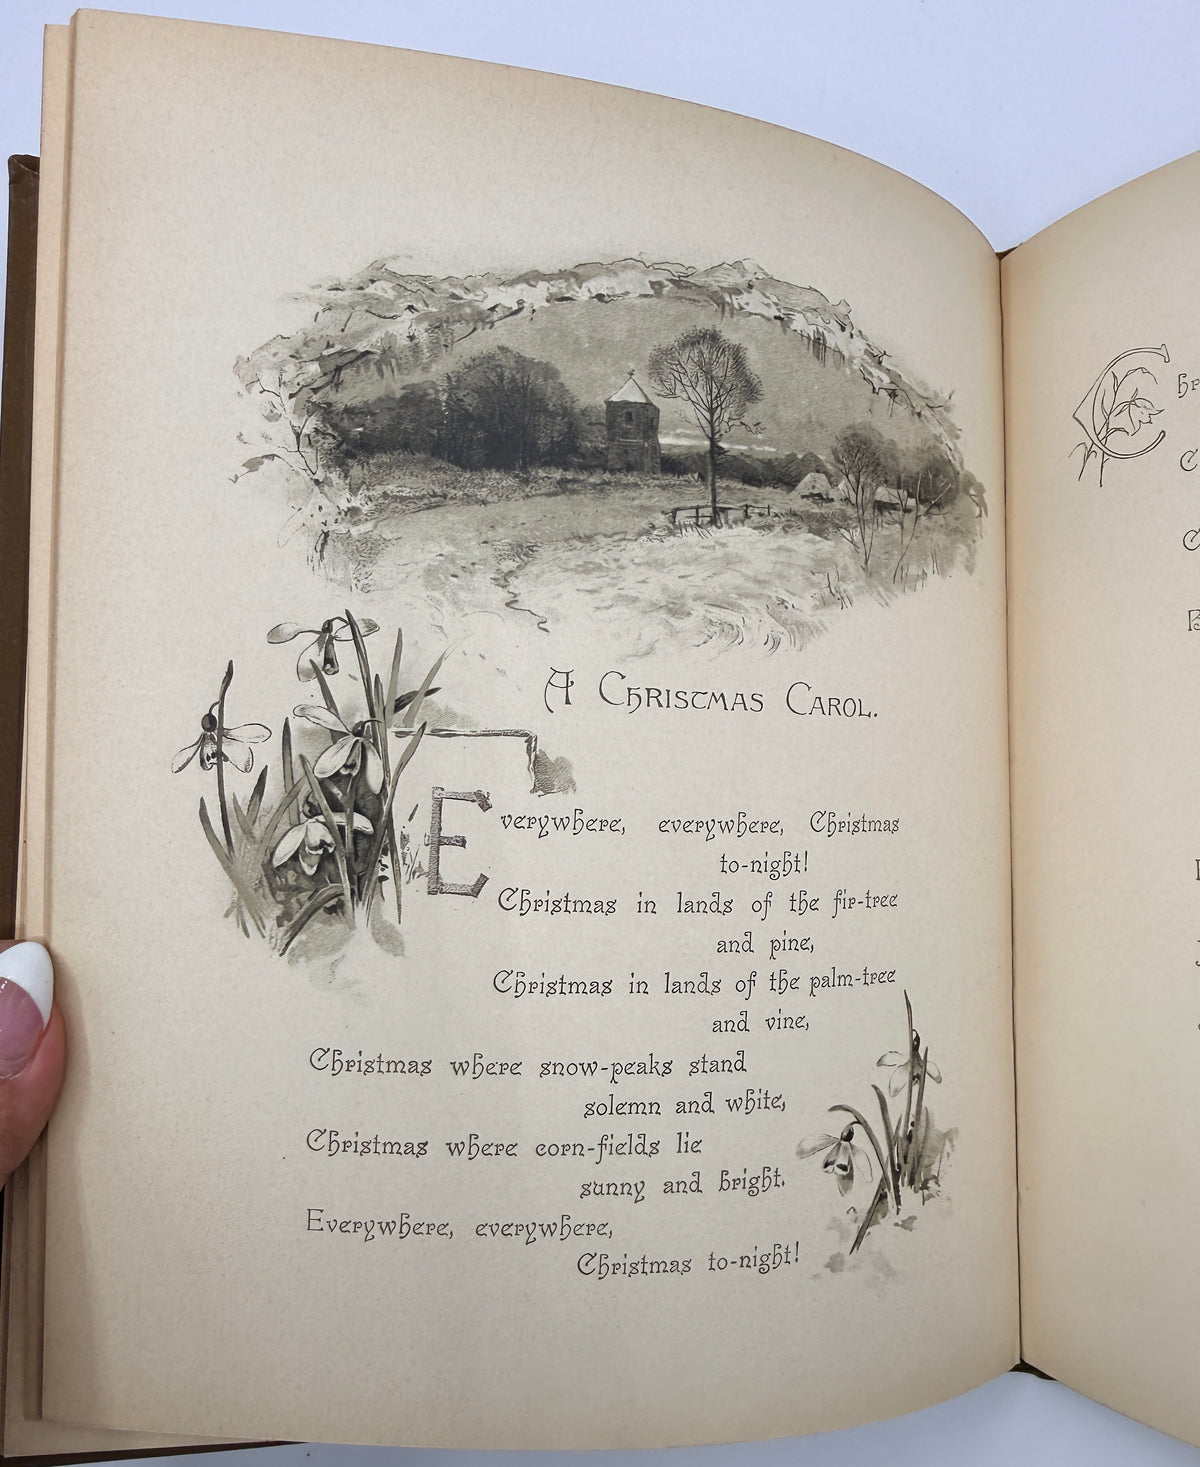 A Christmas Carol.
Everywhere, everywhere, Christmas
to-night!
Christmas in lands of the fir-tree
and pine,
Christmas in lands of the palm-tree
and vine,
Christmas where snow-peaks stand
solemn and white,
Christmas where corn-fields lie
sunny and bright.
Everywhere, everywhere,
Christmas to-night!